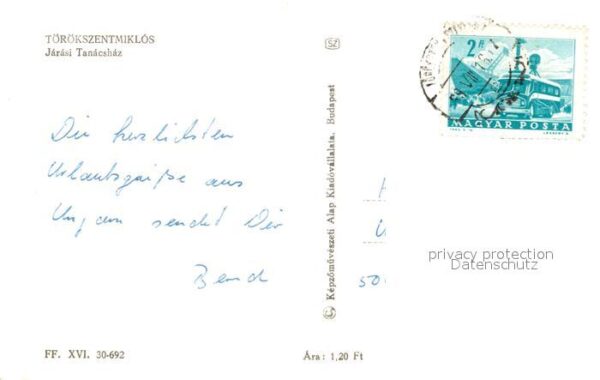 TÖRÖKSZENTMIKLÓS
Járási Tanácsház
SZ
2 Ft
MAGYAR POSTA
Die herzlichsten
Urlaubsgrüße aus
Ungarn sendet Dir
Bernd
Képzőművészeti Alap Kiadóvállalata, Budapest
50
privacy protection
Datenschutz
FF. XVI. 30-692
Ára: 1,20 Ft